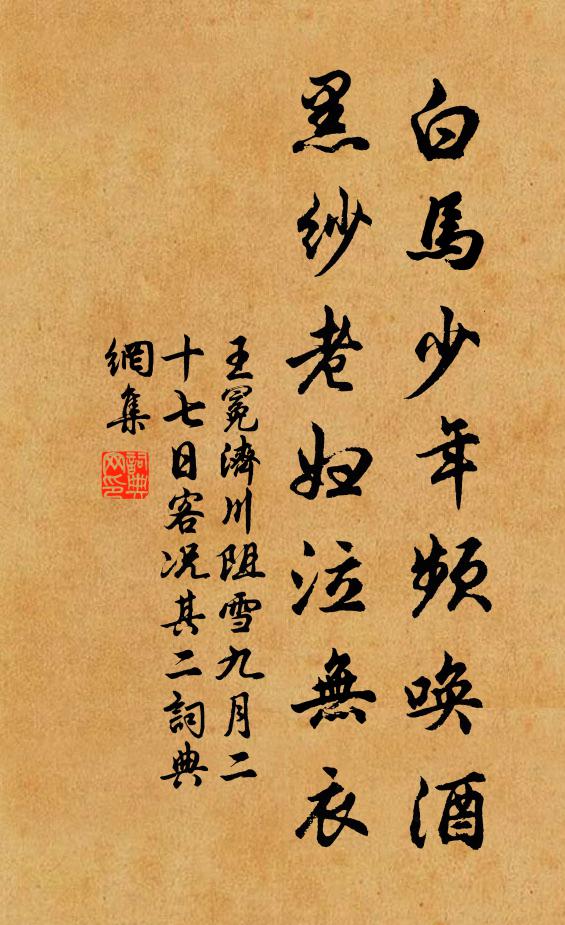 白馬少年頻喚酒
黑紗老妇泣無衣
王冕濟川阻雪九月二
十七日客况其二詞典
網集
詞典
网印